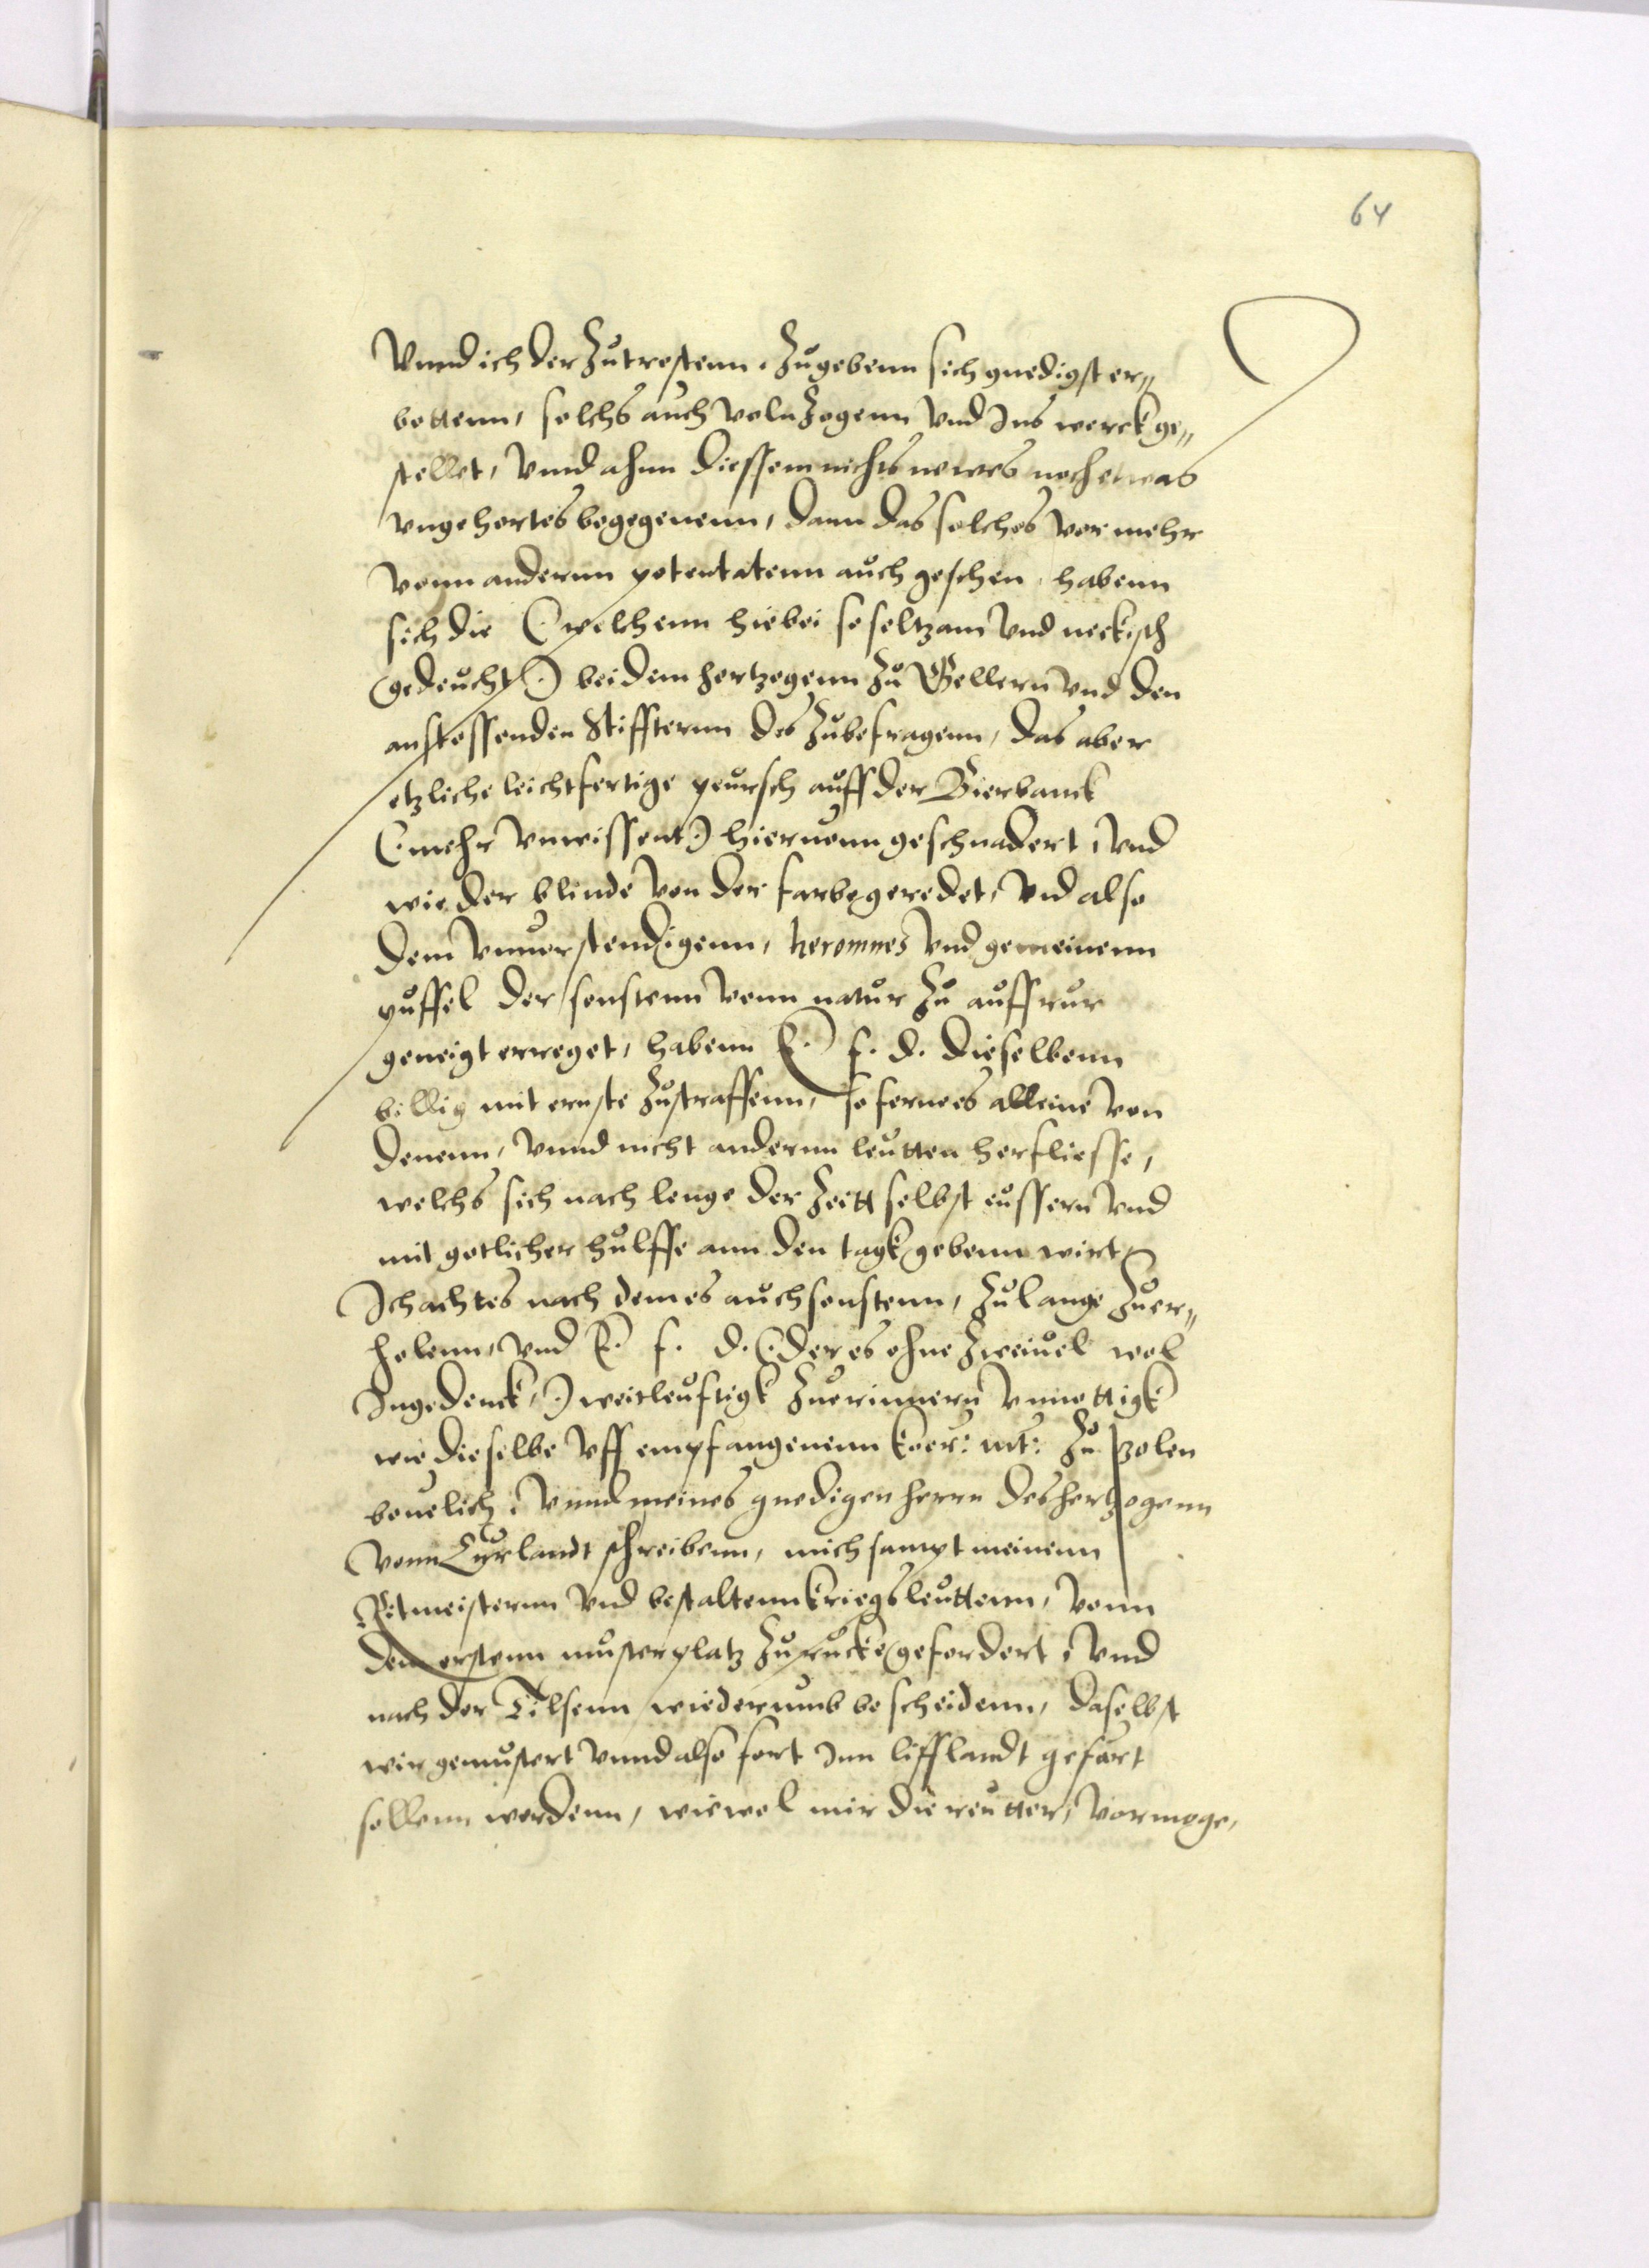 64
Vnnd ich der zutrostenn. Zugebenn sich gnedigst er„
bottenn, solchs auch volnzogenn vnd Ins werck ge„
stellet, vnnd ahnn diessem nichts newes noch etwas
vngehortes begegenenn, dann das solches vor mehr
vonn anderenn potentatenn auch geschen, habenn
sich die (: welchenn hiebei so seltzam vnd neckisch
gedeucht :) bei dem hertzogenn zu Gellern vnd den
anstossenden Stiffternn des zubefragenn, das aber
etzliche leichtfertige peursch auff der Bierbanck
(: mehr vnwissent :) hieruonn geschnadert, vnd
wie der blinde von der farbe geredet, vnd also
dem vnuerstendigenn, heromnes vnd gemeinenn
puffel der sonstenn vonn natur zu auffrur
geneigt erreget, habenn E. f. d. dieselbenn
billig mit ernste zustraffenn, so fernes alleine von
denenn, vnnd nicht anderenn leutten herfliesse,
welchs sich nach lenge der Zeitt selbst eussern vnd
mit gotlicher hulffe ann den tagk gebenn wirt
Ich achtes nach dem es auch sonstenn, zu lange zuer„
holenn, vnd E. f. d. (: der es ohne zweiuel wol
Ingedenck, :) weitleuftigk zuerinnern vnnottigk
wie dieselbe vff empfangenenn koer: mt: zu Polen
beuelich, vnnd meines gnedigen herrn des hertzogenn
vonn Curlandt schreibenn, mich sampt meinenn
Ritmeisternn vnd bestaltenn kriegsleuttenn, vonn
dem erstenn musterplatz zurucke gefordert, vnd
nach der Tilsenn wiederumb bescheidenn, daselbst
wir gemustert vnnd also fort Inn lifflandt gefurt
sollenn werdenn, wiewol mir die reutter, vormoge,